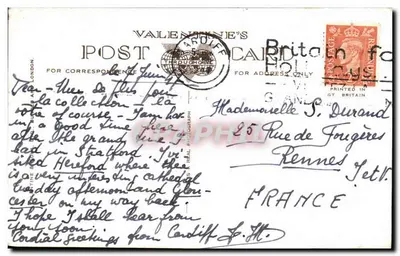 VALENTINE'S
POST CARD
FOR CORRESPONDENCE
FOR ADDRESS ONLY
CARDIFF
Britain
PRINTED IN
BRITAIN
le 7 Juin
la collection - la
votre of course - I am having
a good time here
after the grand time I
had in Stratford. I've
liked Hereford where there
is a very interesting cathedral
Tuesday afternoon and Glou-
cester on my way back.
I hope I shall hear from
you soon.
Cordial greetings from Cardiff
Mademoiselle S. Durand
25 Rue de Fougères
Rennes
I et V.
FRANCE
LONDON